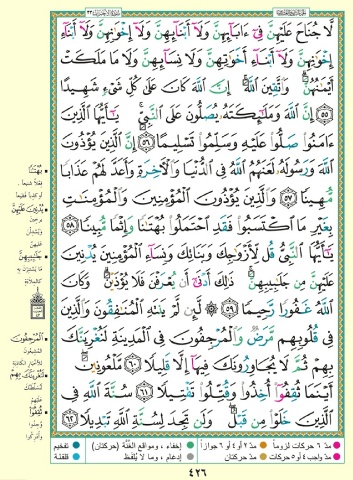 لَّا جُنَاحَ عَلَيْهِنَّ فِىٓ ءَابَآئِهِنَّ وَلَآ أَبْنَآئِهِنَّ وَلَآ إِخْوَٰنِهِنَّ وَلَآ أَبْنَآءِ
إِخْوَٰنِهِنَّ وَلَآ أَبْنَآءِ أَخَوَٰتِهِنَّ وَلَا نِسَآئِهِنَّ وَلَا مَا مَلَكَتْ
أَيْمَٰنُهُنَّ ۗ وَٱتَّقِينَ ٱللَّهَ ۚ إِنَّ ٱللَّهَ كَانَ عَلَىٰ كُلِّ شَىْءٍ شَهِيدًا
٥٥ إِنَّ ٱللَّهَ وَمَلَٰٓئِكَتَهُۥ يُصَلُّونَ عَلَى ٱلنَّبِىِّ ۚ يَٰٓأَيُّهَا ٱلَّذِينَ
ءَامَنُوا۟ صَلُّوا۟ عَلَيْهِ وَسَلِّمُوا۟ تَسْلِيمًا ٥٦ إِنَّ ٱلَّذِينَ يُؤْذُونَ
ٱللَّهَ وَرَسُولَهُۥ لَعَنَهُمُ ٱللَّهُ فِى ٱلدُّنْيَا وَٱلْءَاخِرَةِ وَأَعَدَّ لَهُمْ عَذَابًا
مُّهِينًا ٥٧ وَٱلَّذِينَ يُؤْذُونَ ٱلْمُؤْمِنِينَ وَٱلْمُؤْمِنَٰتِ
بِغَيْرِ مَا ٱكْتَسَبُوا۟ فَقَدِ ٱحْتَمَلُوا۟ بُهْتَٰنًا وَإِثْمًا مُّبِينًا ٥٨
يَٰٓأَيُّهَا ٱلنَّبِىُّ قُل لِّأَزْوَٰجِكَ وَبَنَاتِكَ وَنِسَآءِ ٱلْمُؤْمِنِينَ يُدْنِينَ
عَلَيْهِنَّ مِن جَلَٰبِيبِهِنَّ ۚ ذَٰلِكَ أَدْنَىٰٓ أَن يُعْرَفْنَ فَلَا يُؤْذَيْنَ ۗ وَكَانَ
ٱللَّهُ غَفُورًا رَّحِيمًا ٥٩ ۞ لَّئِن لَّمْ يَنتَهِ ٱلْمُنَٰفِقُونَ وَٱلَّذِينَ
فِى قُلُوبِهِم مَّرَضٌ وَٱلْمُرْجِفُونَ فِى ٱلْمَدِينَةِ لَنُغْرِيَنَّكَ
بِهِمْ ثُمَّ لَا يُجَاوِرُونَكَ فِيهَآ إِلَّا قَلِيلًا ٦٠ مَّلْعُونِينَ ۖ
أَيْنَمَا ثُقِفُوٓا۟ أُخِذُوا۟ وَقُتِّلُوا۟ تَقْتِيلًا ٦١ سُنَّةَ ٱللَّهِ فِى
ٱلَّذِينَ خَلَوْا۟ مِن قَبْلُ ۖ وَلَن تَجِدَ لِسُنَّةِ ٱللَّهِ تَبْدِيلًا ٦٢
بُهْتَٰنًا
يُدْنِينَ عَلَيْهِنَّ
جَلَٰبِيبِهِنَّ
ٱلْمُرْجِفُونَ
لَنُغْرِيَنَّكَ بِهِمْ
ثُقِفُوٓا۟
مدّ ٦ حركات لزوماً مدّ ٢ أو ٤ أو ٦ جوازاً إخفاء، ومواقع الغُنَّة (حركتان) تفخيم
مدّ واجب ٤ أو ٥ حركات مدّ حركتان إدغام، وما لا يُلفظ قلقلة
٤٢٦